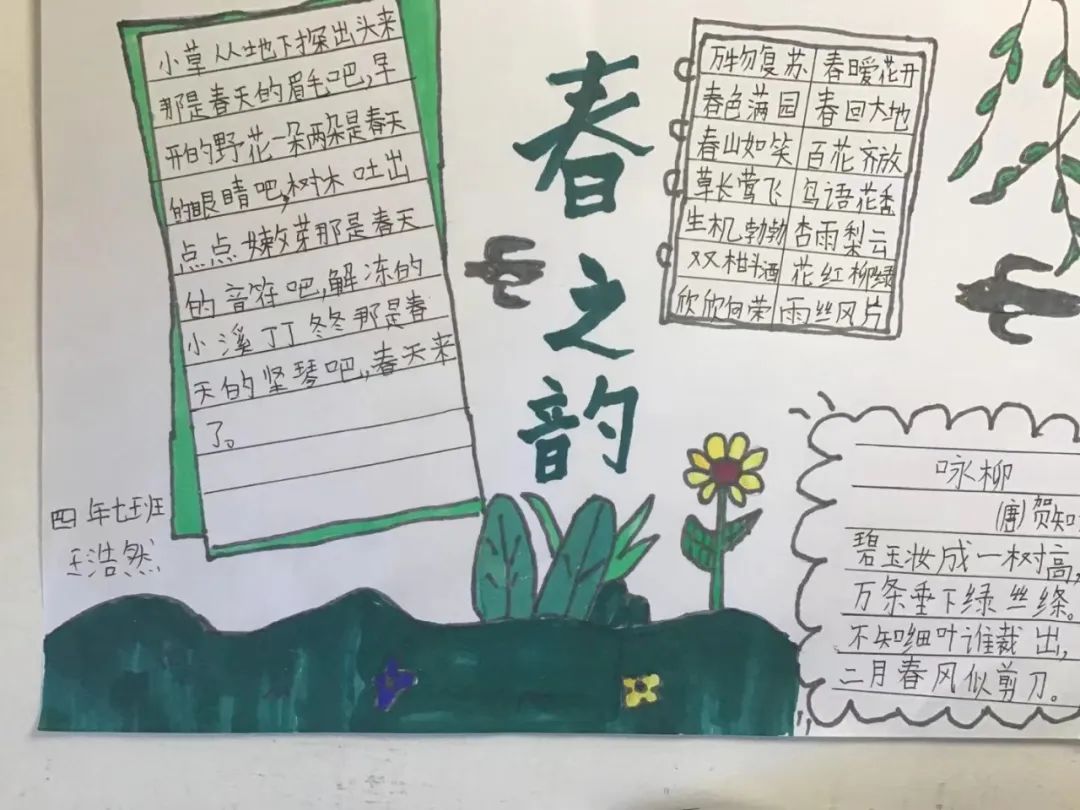 小草从地下探出头来
那是春天的眉毛吧,早
开的野花一朵两朵是春天
的眼睛吧,树木吐出
点点嫩芽那是春天
的音符吧,解冻的
小溪丁丁冬冬那是春
天的竖琴吧,春天来
了。
四年七班
王浩然
春之韵
万物复苏 春暖花开
春色满园 春回大地
春山如笑 百花齐放
草长莺飞 鸟语花香
生机勃勃 杏雨梨云
双柑斗酒 花红柳绿
欣欣向荣 雨丝风片
咏柳
(唐)贺知
碧玉妆成一树高,
万条垂下绿丝绦。
不知细叶谁裁出,
二月春风似剪刀。